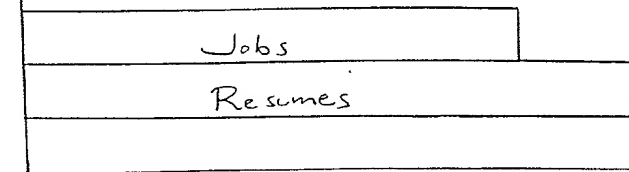 Jobs
Resumes